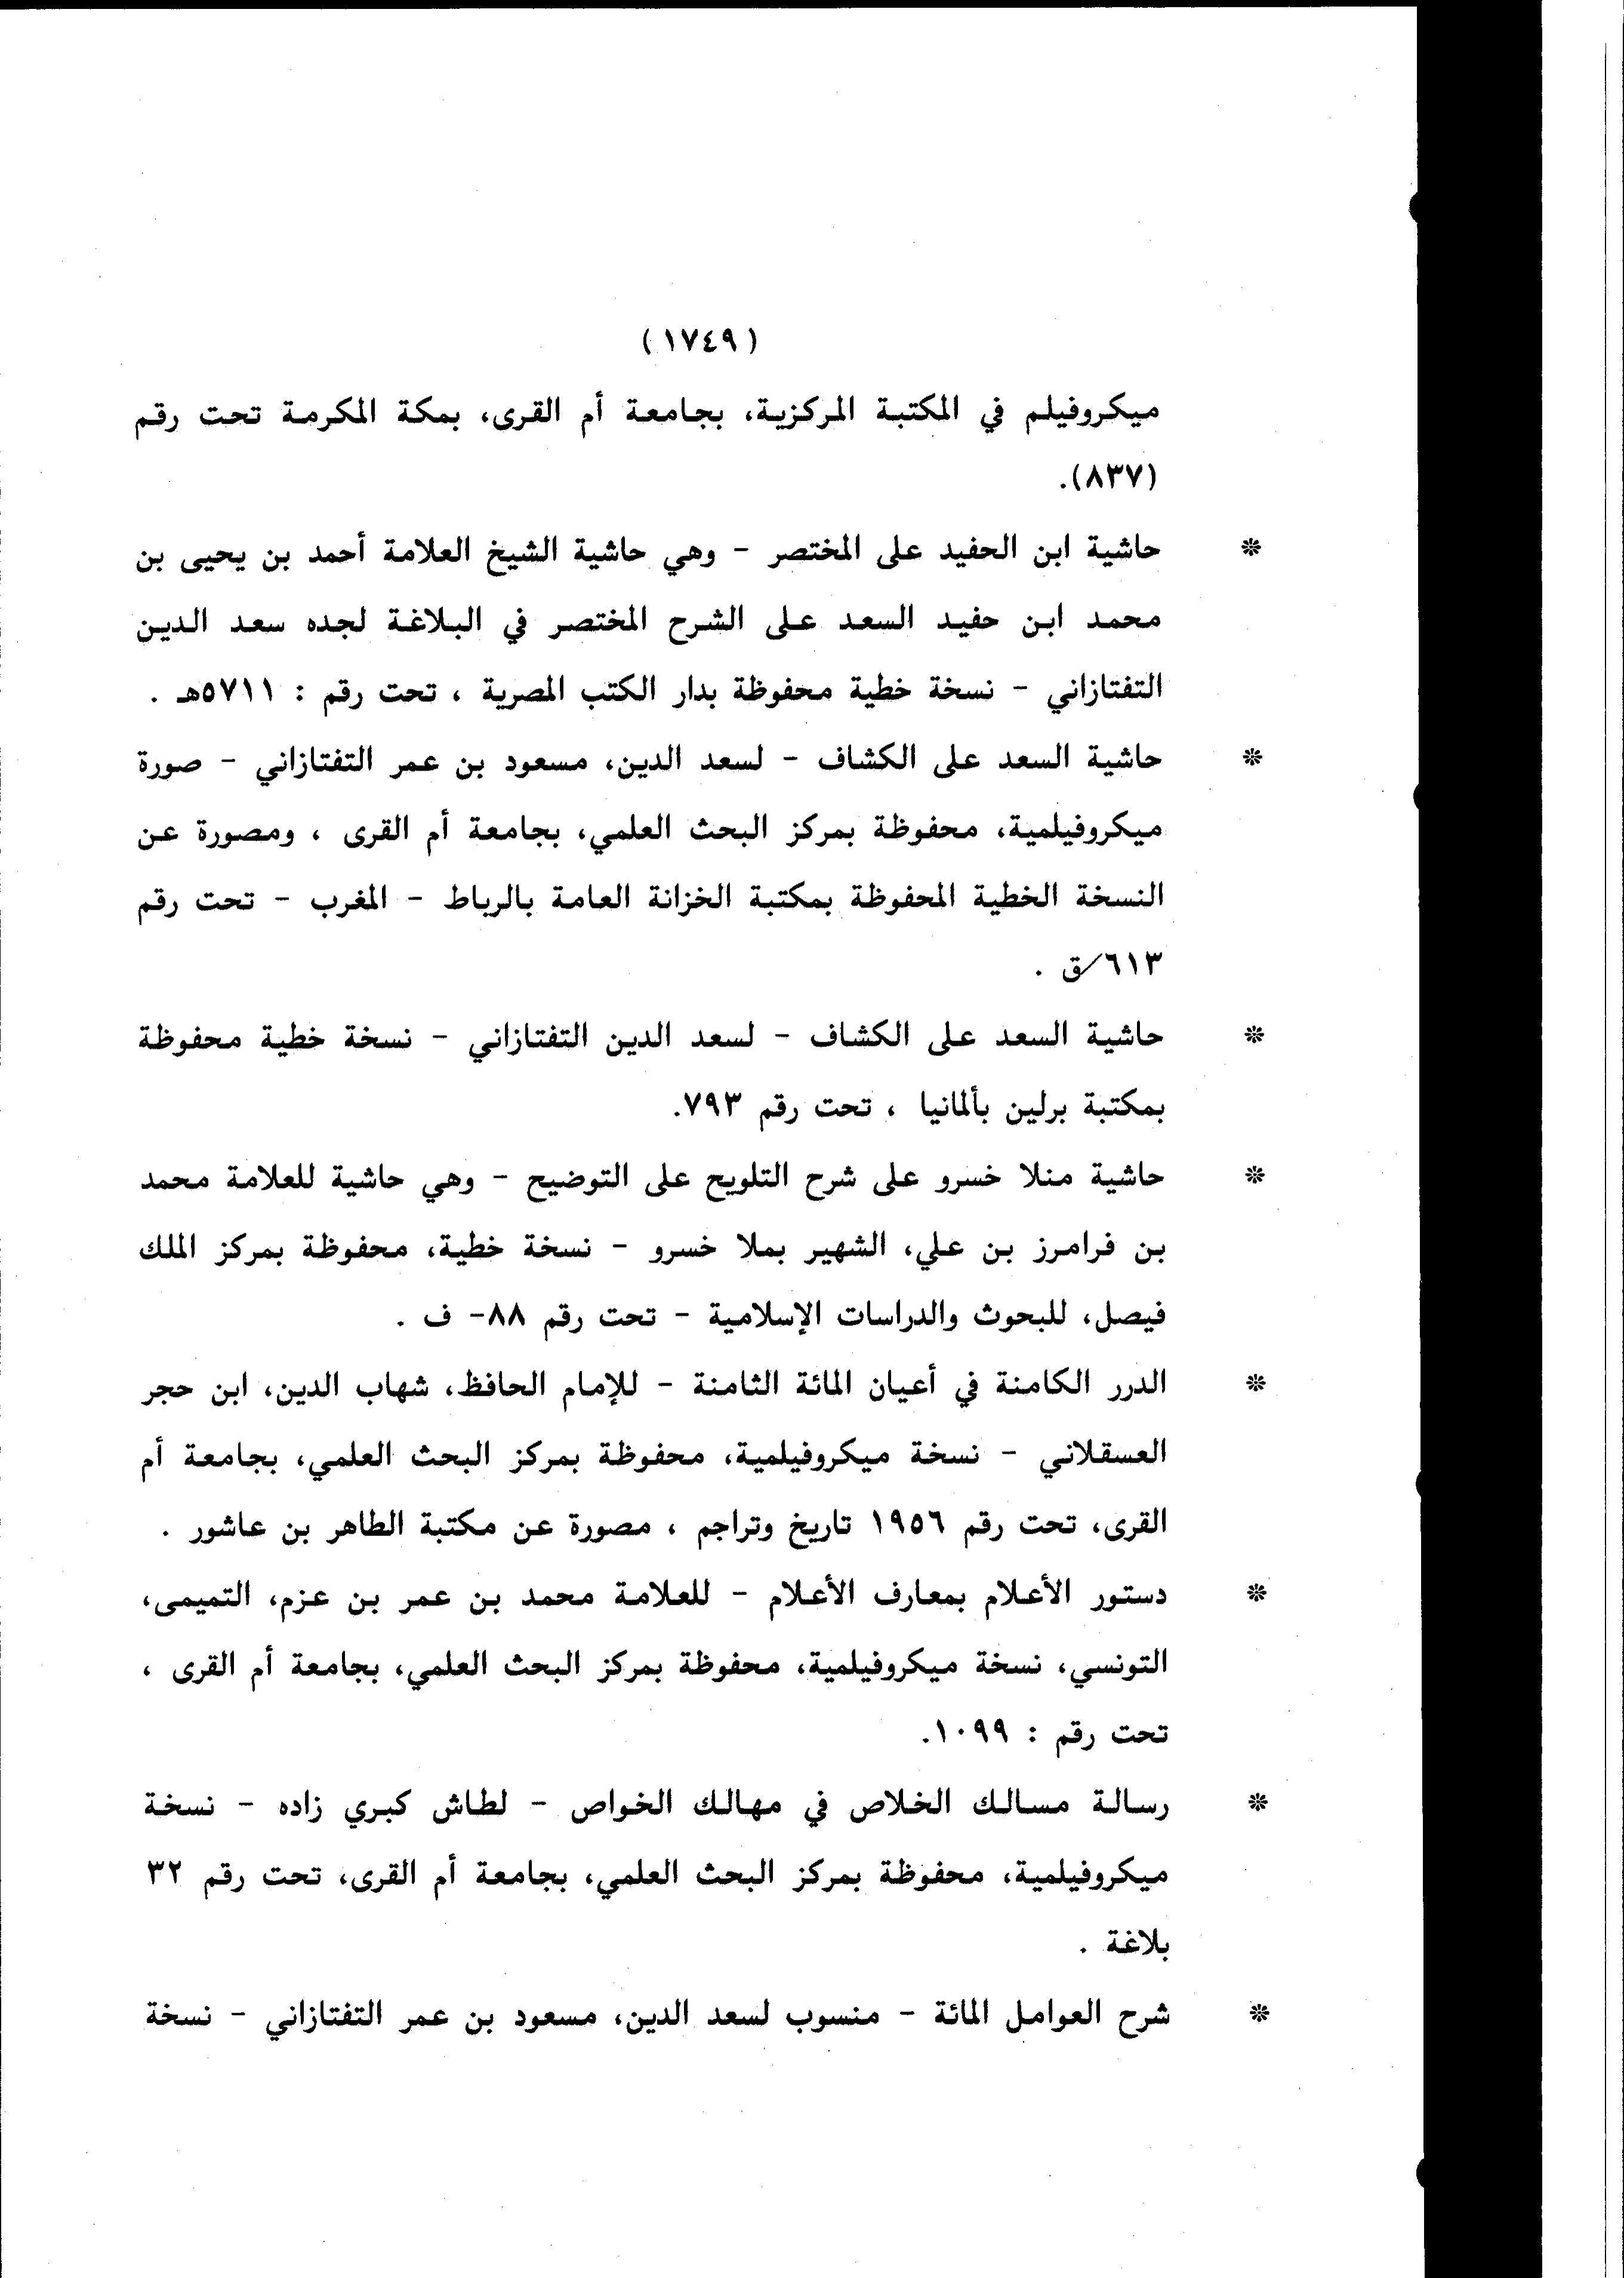 (١٧٤٩)
ميكروفيلم في المكتبة المركزية، بجامعة أم القرى، بمكة المكرمة تحت رقم
(٨٣٧).
* حاشية ابن الحفيد على المختصر - وهي حاشية الشيخ العلامة أحمد بن يحيى بن
محمد ابن حفيد السعد على الشرح المختصر في البلاغة لجده سعد الدين
التفتازاني - نسخة خطية محفوظة بدار الكتب المصرية ، تحت رقم : ٥٧١١هـ .
* حاشية السعد على الكشاف - لسعد الدين، مسعود بن عمر التفتازاني - صورة
ميكروفيلمية، محفوظة بمركز البحث العلمي، بجامعة أم القرى ، ومصورة عن
النسخة الخطية المحفوظة بمكتبة الخزانة العامة بالرباط - المغرب - تحت رقم
٦١٣/ق .
* حاشية السعد على الكشاف - لسعد الدين التفتازاني - نسخة خطية محفوظة
بمكتبة برلين بألمانيا ، تحت رقم ٧٩٣.
* حاشية منلا خسرو على شرح التلويح على التوضيح - وهي حاشية للعلامة محمد
بن فرامرز بن علي، الشهير بملا خسرو - نسخة خطية، محفوظة بمركز الملك
فيصل، للبحوث والدراسات الإسلامية - تحت رقم ٨٨- ف .
* الدرر الكامنة في أعيان المائة الثامنة - للإمام الحافظ، شهاب الدين، ابن حجر
العسقلاني - نسخة ميكروفيلمية، محفوظة بمركز البحث العلمي، بجامعة أم
القرى، تحت رقم ١٩٥٦ تاريخ وتراجم ، مصورة عن مكتبة الطاهر بن عاشور .
* دستور الأعلام بمعارف الأعلام - للعلامة محمد بن عمر بن عزم، التميمى،
التونسي، نسخة ميكروفيلمية، محفوظة بمركز البحث العلمي، بجامعة أم القرى ،
تحت رقم : ١٠٩٩.
* رسالة مسالك الخلاص في مهالك الخواص - لطاش كبري زاده - نسخة
ميكروفيلمية، محفوظة بمركز البحث العلمي، بجامعة أم القرى، تحت رقم ٣٢
بلاغة .
* شرح العوامل المائة - منسوب لسعد الدين، مسعود بن عمر التفتازاني - نسخة